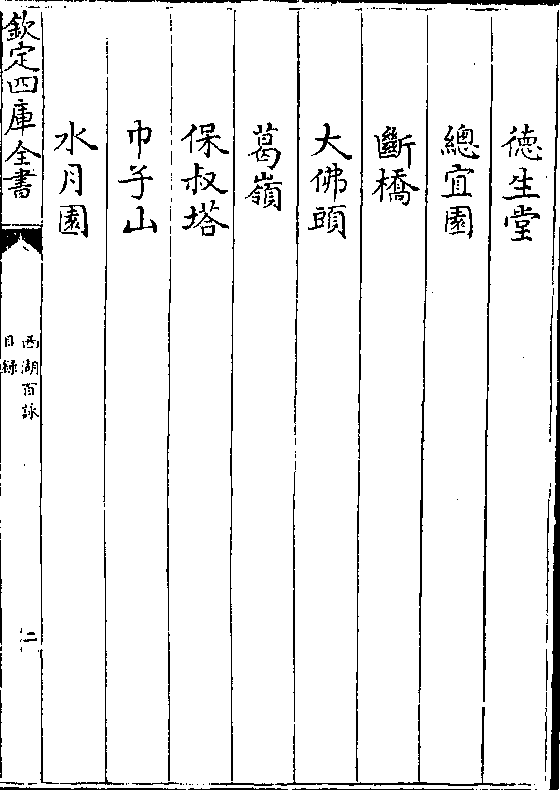 德生堂
總宜園
斷橋
大佛頭
葛嶺
保叔塔
巾子山
水月園
欽定四庫全書
西湖百詠
目錄
二